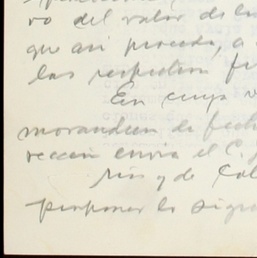 ro del valor de la
que asi proceda, a
las respectiva
En cuya
morandum de fech
rección envia el C.
rin y de Col
proponer la sigu